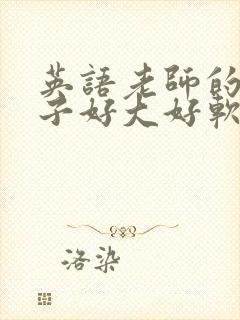 英語老師的
子好大好軟
洛染